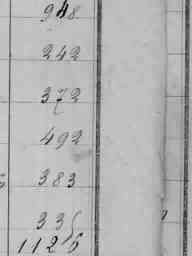 948
242
372
492
383
335
1126